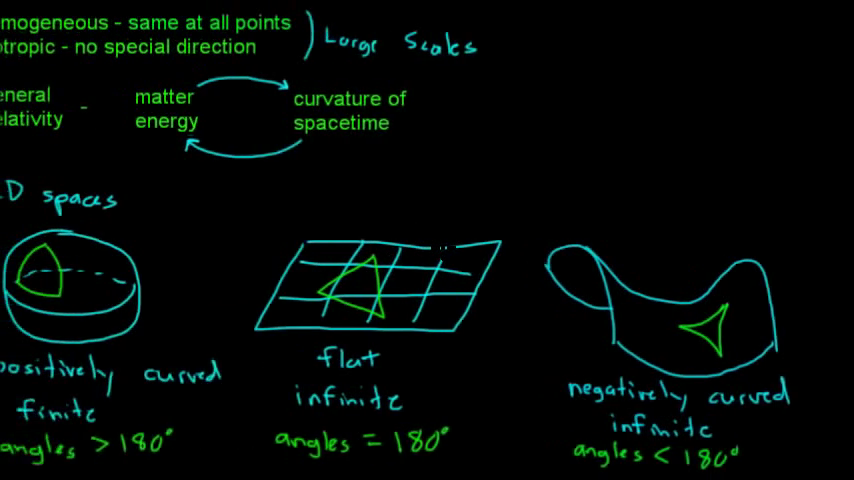 mogeneous - same at all points
otropic - no special direction
Large Scales
eneral
elativity
-
matter
energy
curvature of
spacetime
D spaces
positively curved
finite
angles > 180°
flat
infinite
angles = 180°
negatively curved
infinite
angles < 180°